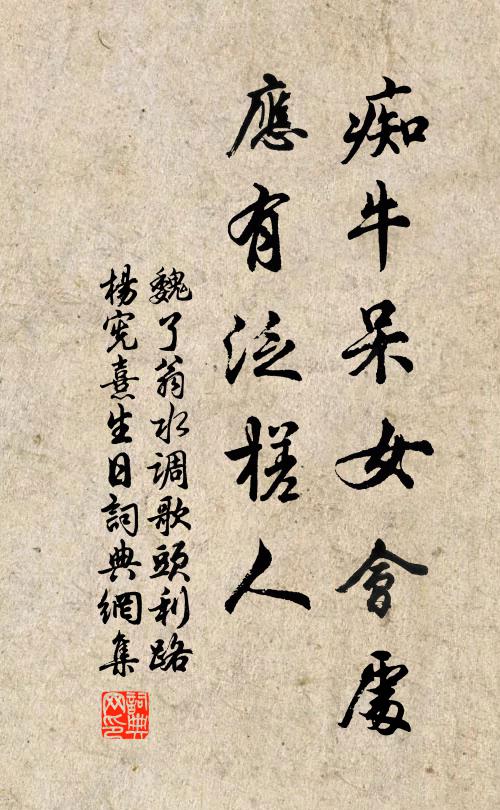 痴牛呆女會處
應有泛槎人
魏了翁水调歌頭利路
楊宪熹生日詞典網集
詞典
网印